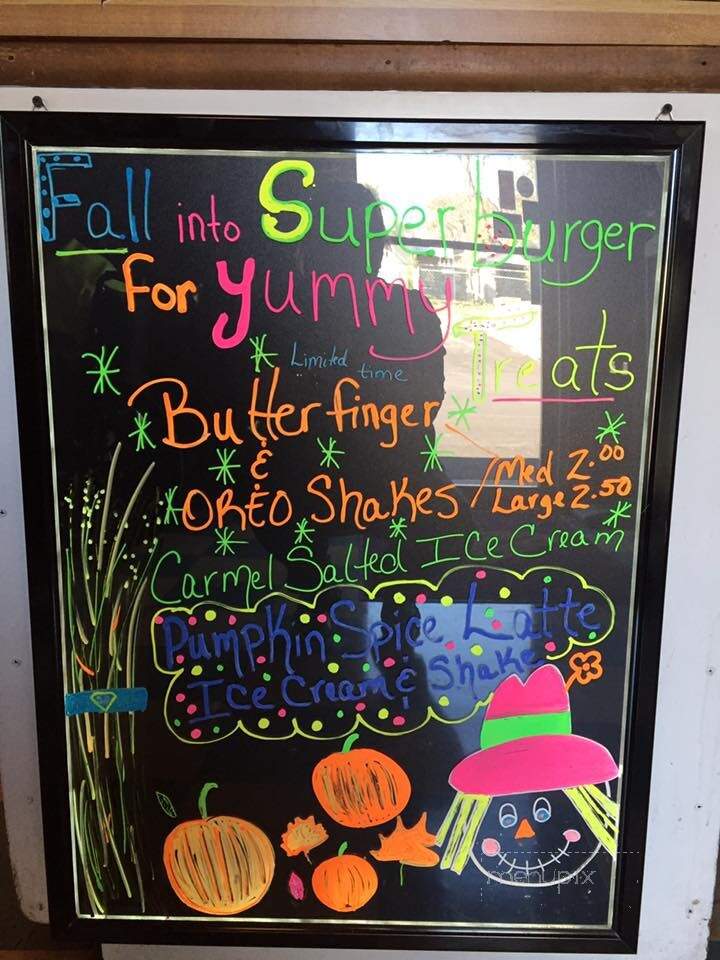 Fall into Superburger
for Yummy
Treats
Limited time
Butterfinger
&
OREO Shakes / Med 2.00
Large 2.50
Carmel Salted Ice Cream
Pumpkin Spice Latte
Ice Cream & Shake
menupix